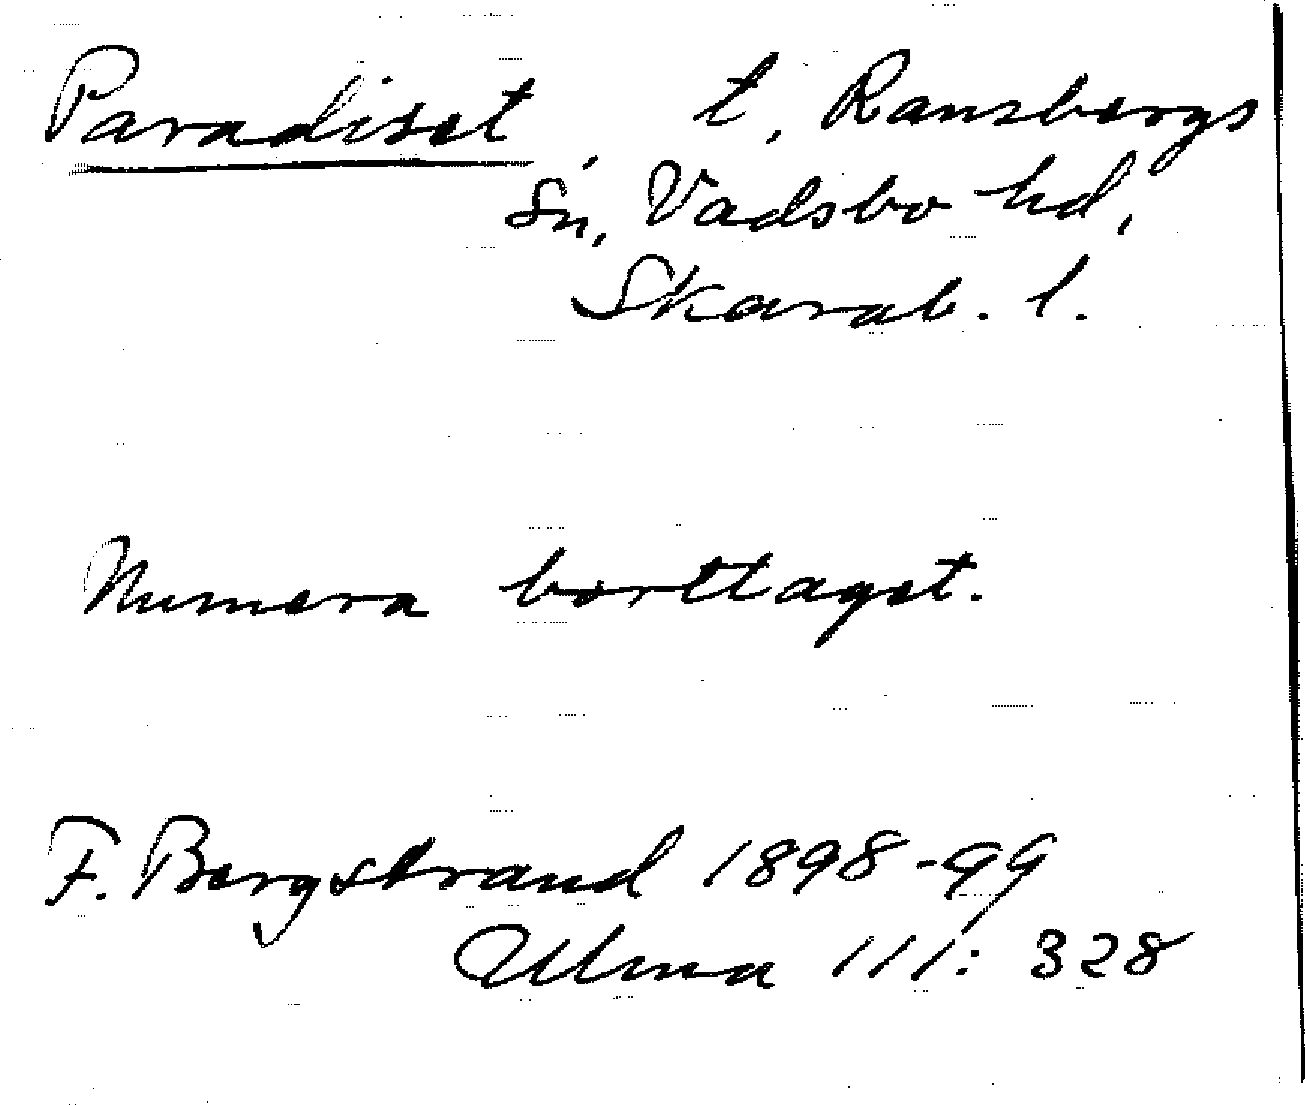 Paradiset t, Ransbergs
sn, Vadsbo hd,
Skarab. l.
Numera borttaget.
F. Bergstrand 1898-99
Ulma 111: 328